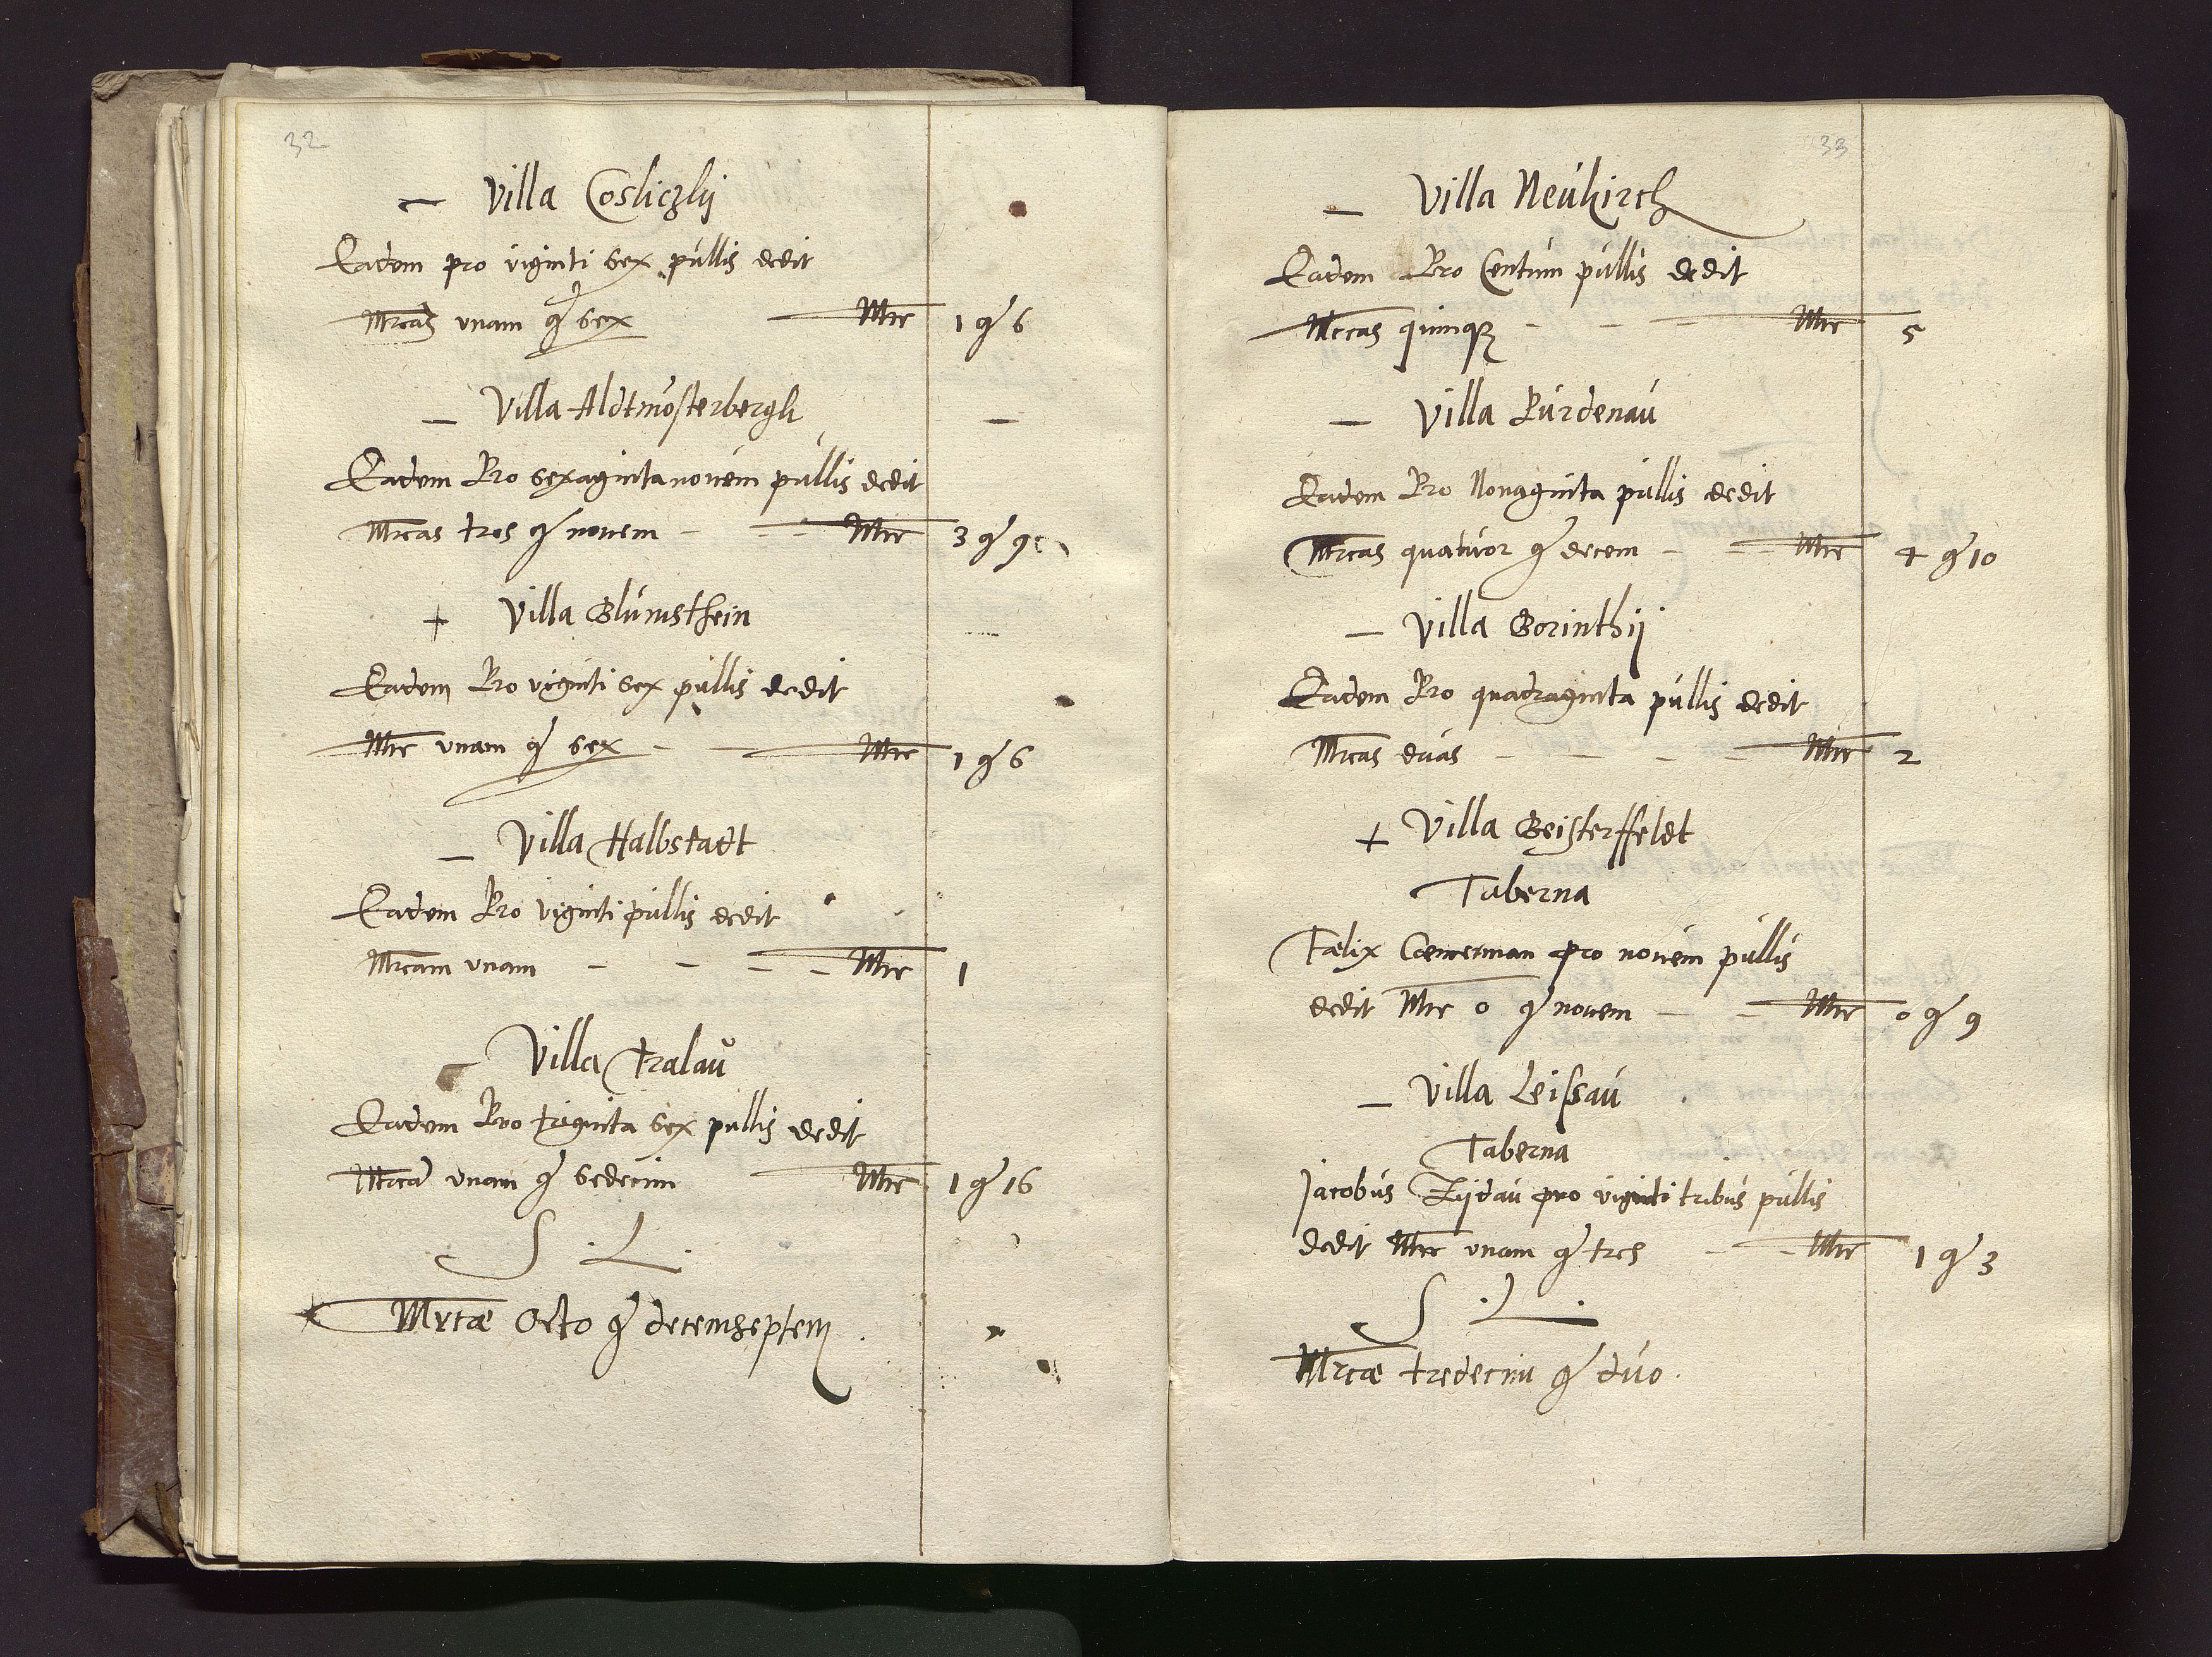 32
— Villa Cosliczky
Eadem pro viginti sex pullis dedit
Mrcas unam g sex — Mrc 1 g 6
— Villa Aldtmosterbergk —
Eadem Pro sexagintanovem pullis dedit
Mrcas tres g novem - - - Mrc 3 g 9
+ Villa Blumsthein
Eadem Pro viginti sex pullis dedit
Mrc unam g sex - — Mrc 1 g 6
— Villa Halbstadt
Eadem Pro viginti pullis dedit
Mrcam unam - - - - Mrc 1
— Villa Tralau
Eadem Pro triginta sex pullis dedit
Mrca unam g sedecim — Mrc 1 g 16
S . L .
Mrcae Octo g decemseptem .
33
— Villa Neukirch
Eadem Pro Centum pullis dedit
Mrcas quinq3 - - - Mrc 5
— Villa Purdenau
Eadem Pro Nonaginta pullis dedit
Mrcas quatuor g decem - - - Mrc 4 g 10
— Villa Borinthij
Eadem Pro quadraginta pullis dedit
Mrcas duas - - - - Mrc 2
+ Villa Beisterffeldt
Taberna
Faelix Coemerman pro novem pullis
dedit Mrc 0 g novem - - Mrc 0 g 9
— Villa Leissau
Taberna
Jacobus Zijdau pro viginti tribus pullis
dedit Mrc unam g tres - - Mrc 1 g 3
S . L .
Mrcae tredecim g duo .